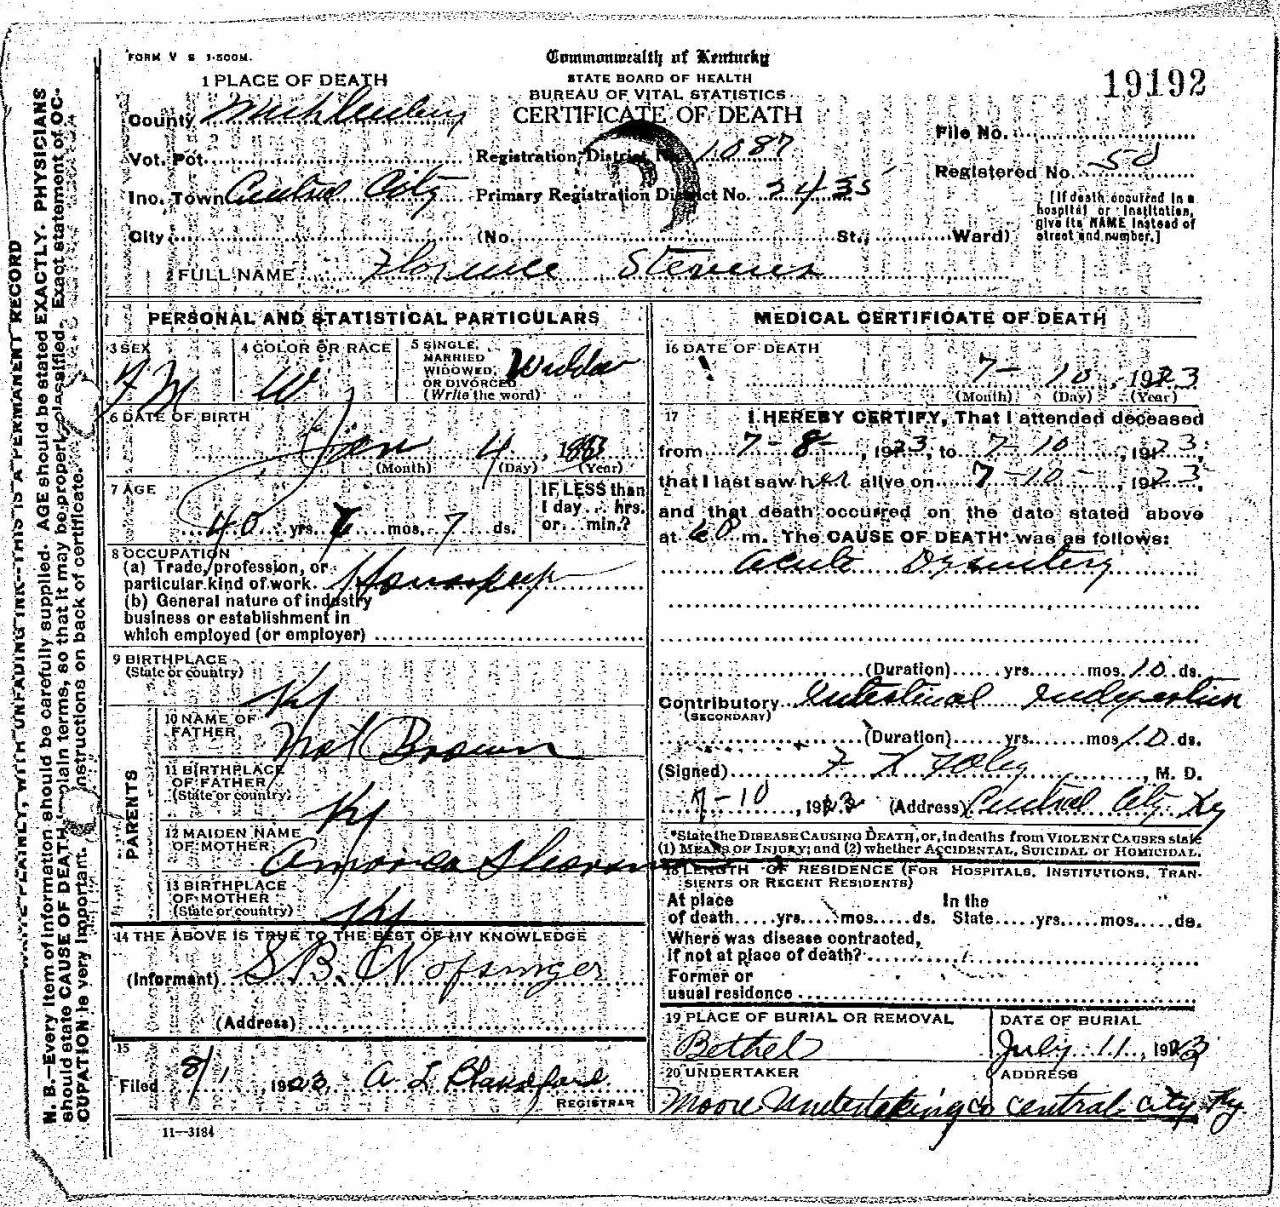 FORM V S 1-500M.
Commonwealth of Kentucky
STATE BOARD OF HEALTH
BUREAU OF VITAL STATISTICS
CERTIFICATE OF DEATH
19192
1 PLACE OF DEATH
County Muhlenberg
Vot. Pct.
Registration District No. 1087
File No.
Inc. Town Central City
Primary Registration District No. 2435
Registered No. 50
City
(No. St., Ward)
[If death occurred in a hospital or Institution, give its NAME instead of street and number.]
2 FULL NAME Florence Stevens
PERSONAL AND STATISTICAL PARTICULARS
3 SEX
4 COLOR OR RACE W
5 SINGLE, MARRIED WIDOWED, OR DIVORCED (Write the word)
6 DATE OF BIRTH
Jan 4, 1883
(Month) (Day) (Year)
7 AGE
40 yrs. mos. 7 ds.
IF LESS than 1 day... hrs. or... min.?
8 OCCUPATION
(a) Trade, profession, or particular kind of work.
(b) General nature of industry business or establishment in which employed (or employer)
9 BIRTHPLACE
(State or country) Ky
PARENTS
10 NAME OF FATHER Brown
11 BIRTHPLACE OF FATHER (State or country) Ky
12 MAIDEN NAME OF MOTHER
13 BIRTHPLACE OF MOTHER (State or country) Ky
14 THE ABOVE IS TRUE TO THE BEST OF MY KNOWLEDGE
(Informant) S B. Nofsinger
(Address)
15
Filed 8/1, 1923 A L Blandford
REGISTRAR
11—3184
MEDICAL CERTIFICATE OF DEATH
16 DATE OF DEATH
7- 10, 1923
(Month) (Day) (Year)
17 I HEREBY CERTIFY, That I attended deceased
from 7-8-, 1923, to 7-10, 1923,
that I last saw her alive on 7-10-, 1923,
and that death occurred on the date stated above
at 6 P m. The CAUSE OF DEATH* was as follows:
Acute Dysentery
(Duration) yrs. mos. 10 ds.
Contributory Intestinal Indigestion
(SECONDARY)
(Duration) yrs. mos. 10 ds.
(Signed) Foley, M. D.
7-10, 1923 (Address) Central City Ky
*State the DISEASE CAUSING DEATH, or, in deaths from VIOLENT CAUSES state
(1) MEANS OF INJURY; and (2) whether ACCIDENTAL, SUICIDAL or HOMICIDAL.
18 LENGTH OF RESIDENCE (FOR HOSPITALS, INSTITUTIONS, TRANSIENTS OR RECENT RESIDENTS)
At place of death yrs. mos. ds. In the State yrs. mos. ds.
Where was disease contracted,
if not at place of death?
Former or
usual residence
19 PLACE OF BURIAL OR REMOVAL
Bethel
DATE OF BURIAL
July 11, 1923
20 UNDERTAKER
Moore Undertaking Co
ADDRESS
Central City Ky
N. B.—Every item of information should be carefully supplied. AGE should be stated EXACTLY. PHYSICIANS
should state CAUSE OF DEATH in plain terms, so that it may be properly classified. Exact statement of OC-
CUPATION is very important. instructions on back of certificate.
WRITE PLAINLY, WITH UNFADING INK—THIS IS A PERMANENT RECORD